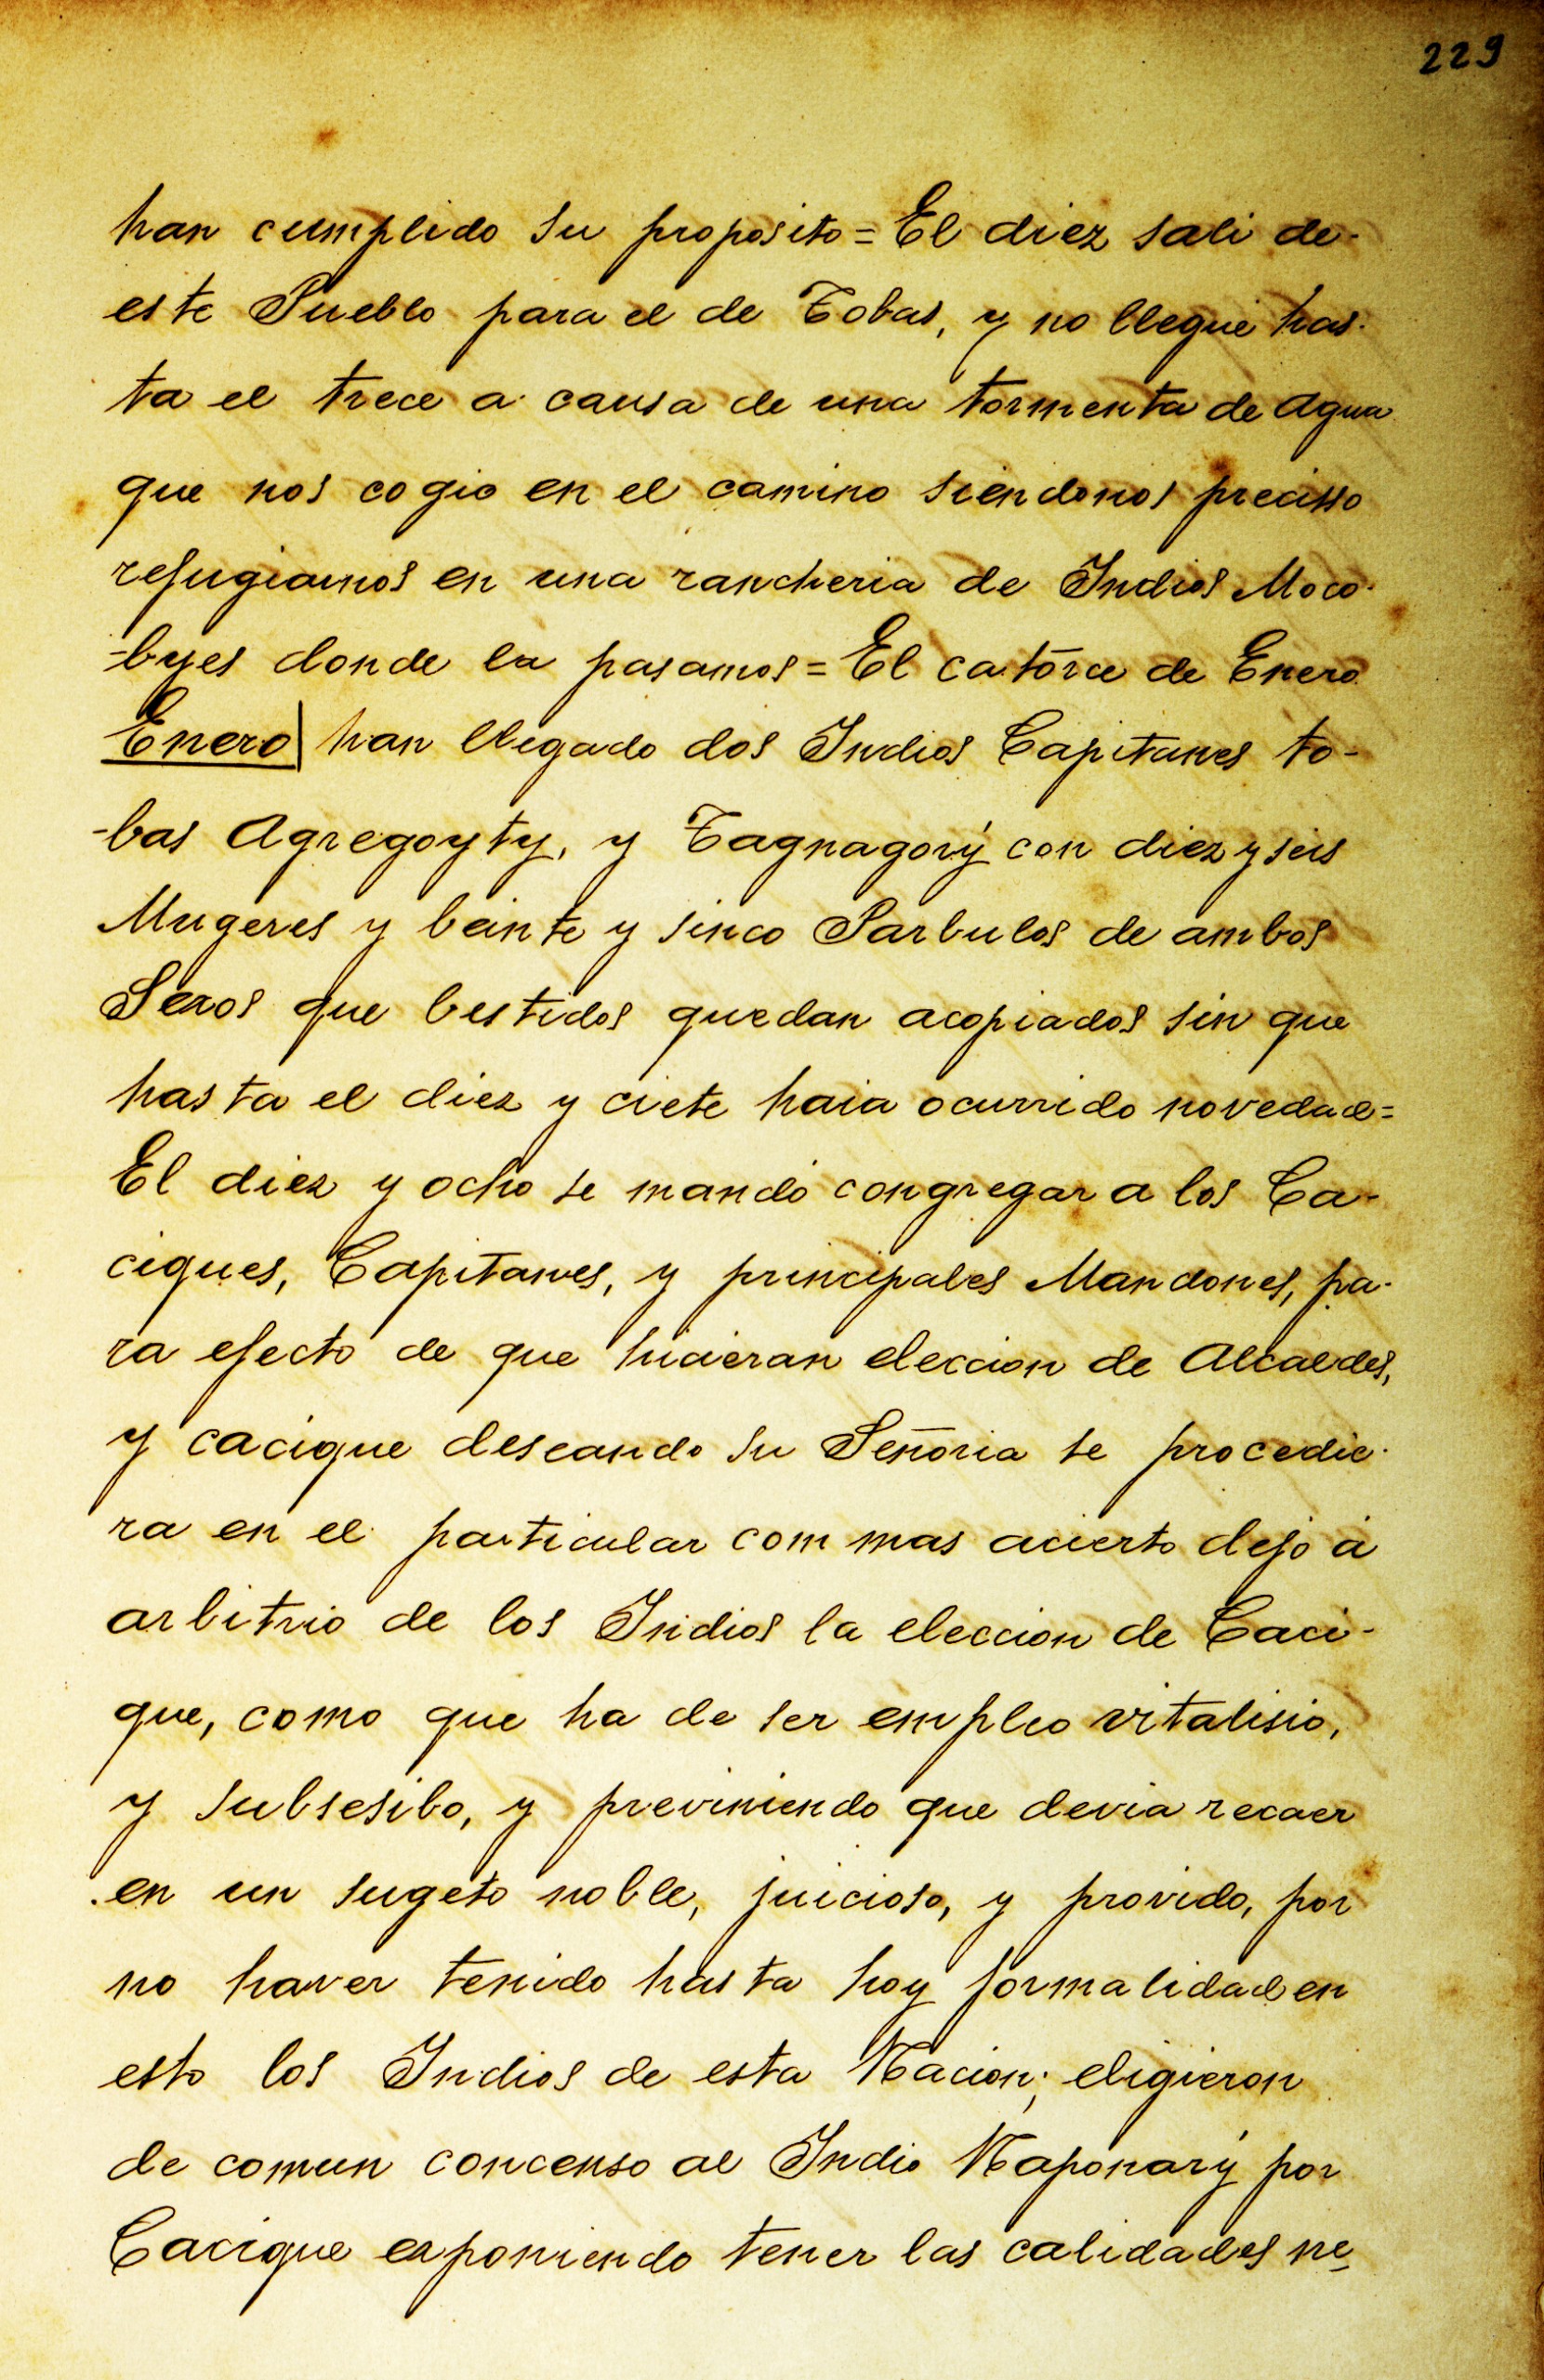 229
han cumplido su proposito = El diez sali de-
este Pueblo para el de Tobas, y no llegué has-
ta el trece a causa de una tormenta de Agua
que nos cogio en el camino siendonos precisso
refugiarnos en una rancheria de Indios Moco-
-byes donde la pasamos = El catorce de Enero
Enero| han llegado dos Indios Capitanes to-
-bas Agregoyty, y Tagnagorý con diez y seis
Mugeres y beinte y sinco Parbulos de ambos
Sexos que bestidos quedan acopiados sin que
hasta el diez y ciete haia ocurrido novedad=
El diez y ocho se mandó congregar a los Ca-
ciques, Capitanes, y principales Mandones, pa-
ra efecto de que hicieran eleccion de Alcaldes,
y cacique deseando su Señoria se procedie-
ra en el particular com mas acierto dejo á
arbitrio de los Indios la eleccion de Caci-
que, como que ha de ser empleo vitalisio,
y subsesibo, y previniendo que devia recaer
en un sugeto noble, juicioso, y provido, por
no haver tenido hasta hoy formalidad en
esto los Indios de esta Nacion; eligieron
de comun concenso al Indio Naponarý por
Cacique exponiendo tener las calidades ne